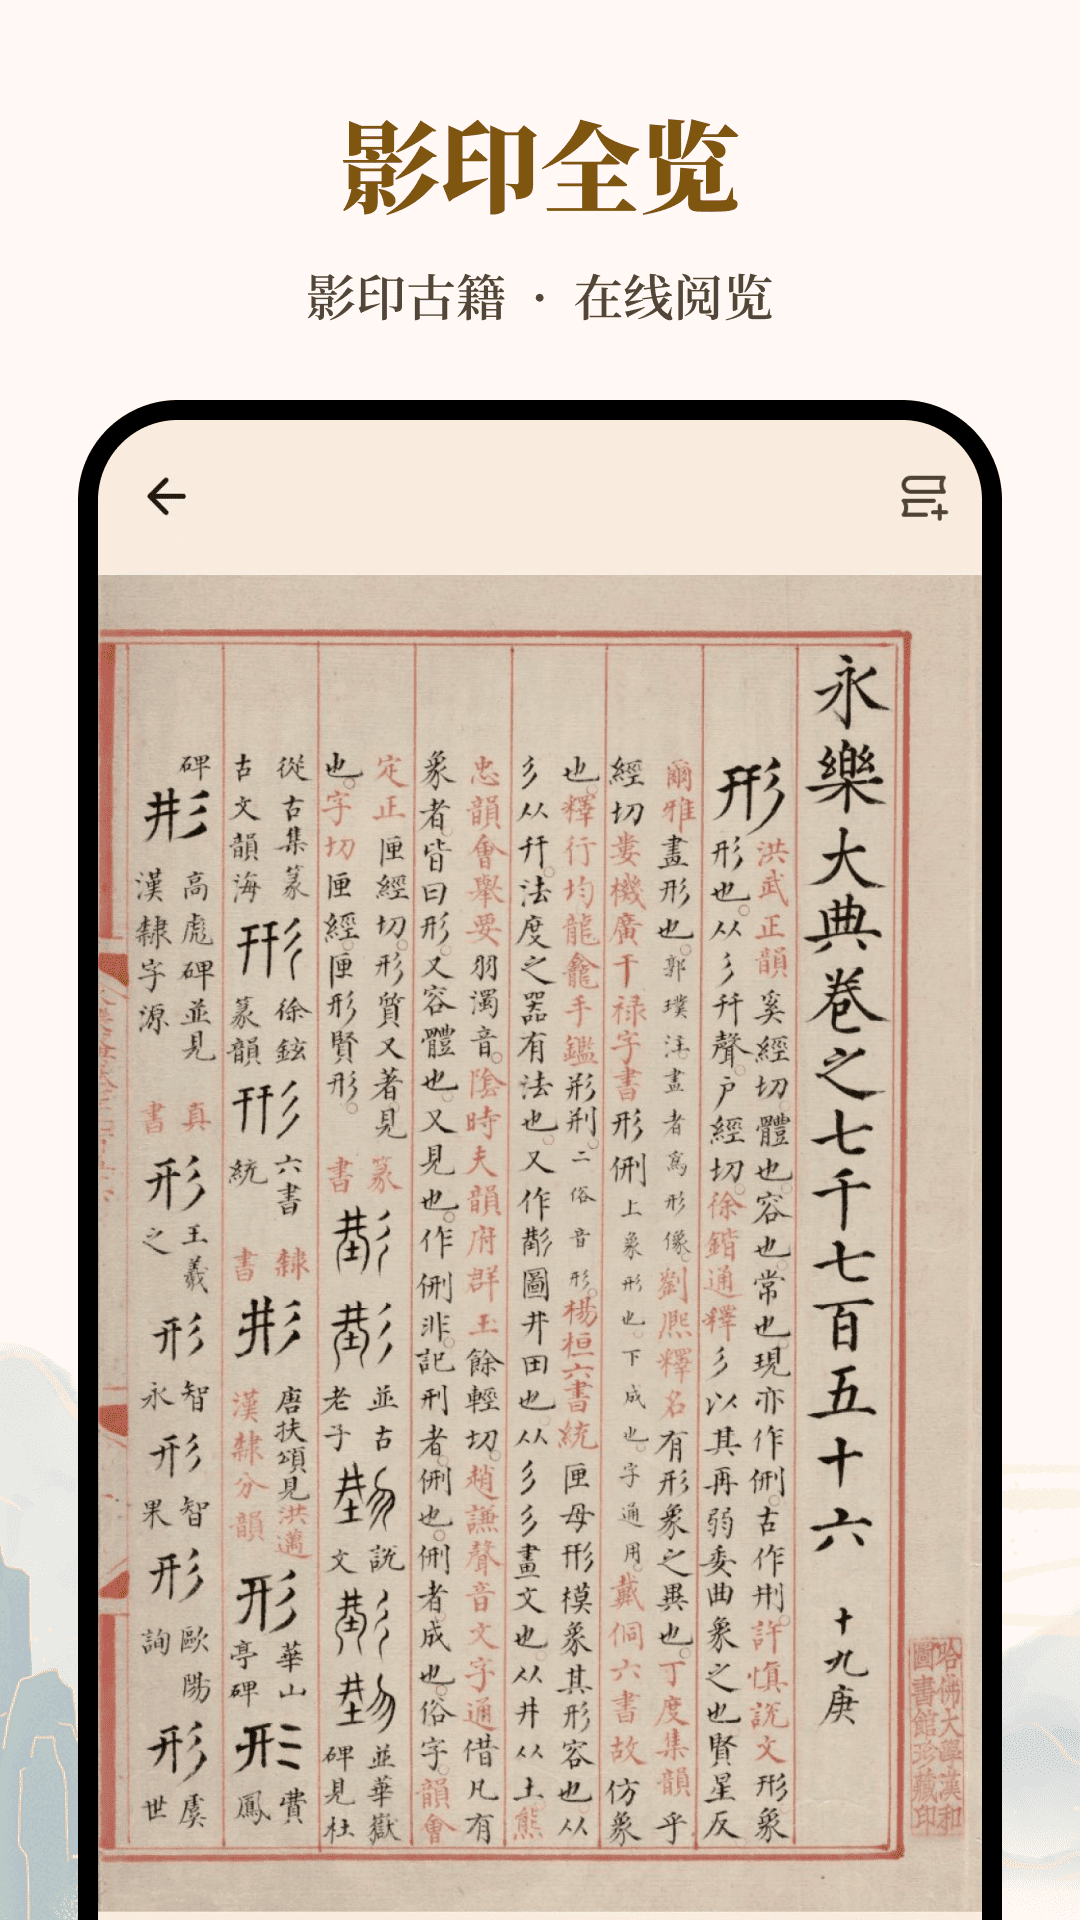 影印全览
影印古籍 · 在线阅览
永樂大典卷之七千七百五十六 十九庚
形
洪武正韻奚經切體也容也常也現亦作侀古作㓝許慎説文形象
形也从彡幵聲戶經切徐鍇通釋彡以其再弱委曲象之也賢星反
爾雅畫形也郭璞注畫者爲形像劉熙釋名有形象之異也丁度集韻乎
經切婁機廣干禄字書形侀上象形也下成也字通用戴侗六書故仿象
也釋行均龍龕手鑑形㓝二俗音形楊桓六書統匣母形模象其形容也从
彡从幵法度之器有法也又作圖井田也从彡彡畫文也从井从土熊
忠韻會舉要羽濁音陰時夫韻府群玉餘輕切趙謙聲音文字通借凡有
象者皆曰形又容體也又見也作侀非記刑者侀也侀者成也俗字韻會
定正匣經切形質又著見
也字切匣經匣形賢形
篆書
並古老子
説文
並華嶽碑見杜
從古集篆古文韻海
形
徐鉉篆韻
形
六書統
隸書
形
唐扶頌見洪邁漢隸分韻
形
華山亭碑
形
費鳳
碑
形
高彪碑並見漢隸字源
真書
形
王羲之
形
智永
形
智果
形
歐陽詢
形
虞世
哈佛大學漢和圖書館珍藏印